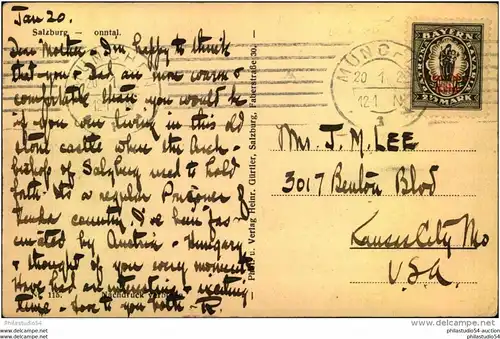 Jan 20.
Salzburg onntal.
Dear Mother - I'm happy to think
that you & Dad are more warm &
comfortable than you would be
if you were living in this old
stone castle when the Arch-
bishop of Salzburg used to hold
forth. It's a regular Prisoner of
Zenda country & I've been fas-
cinated by Austria - Hungary
& thought of you every moment
Have had an interesting & exciting
time - Love to you both - R.
118. Nachdruck verboten.
Phot. u. Verlag Heinr. Gürtler, Salzburg, Faberstraße 30.
MÜNCHEN
20 1 2
12-1 N
3
BAYERN
MARK
Mrs. J. M. LEE
3017 Benton Blvd
Kansas City Mo
U.S.A.
http://www.delcampe.net
philastudio54
philastudio54.com
philastudio54